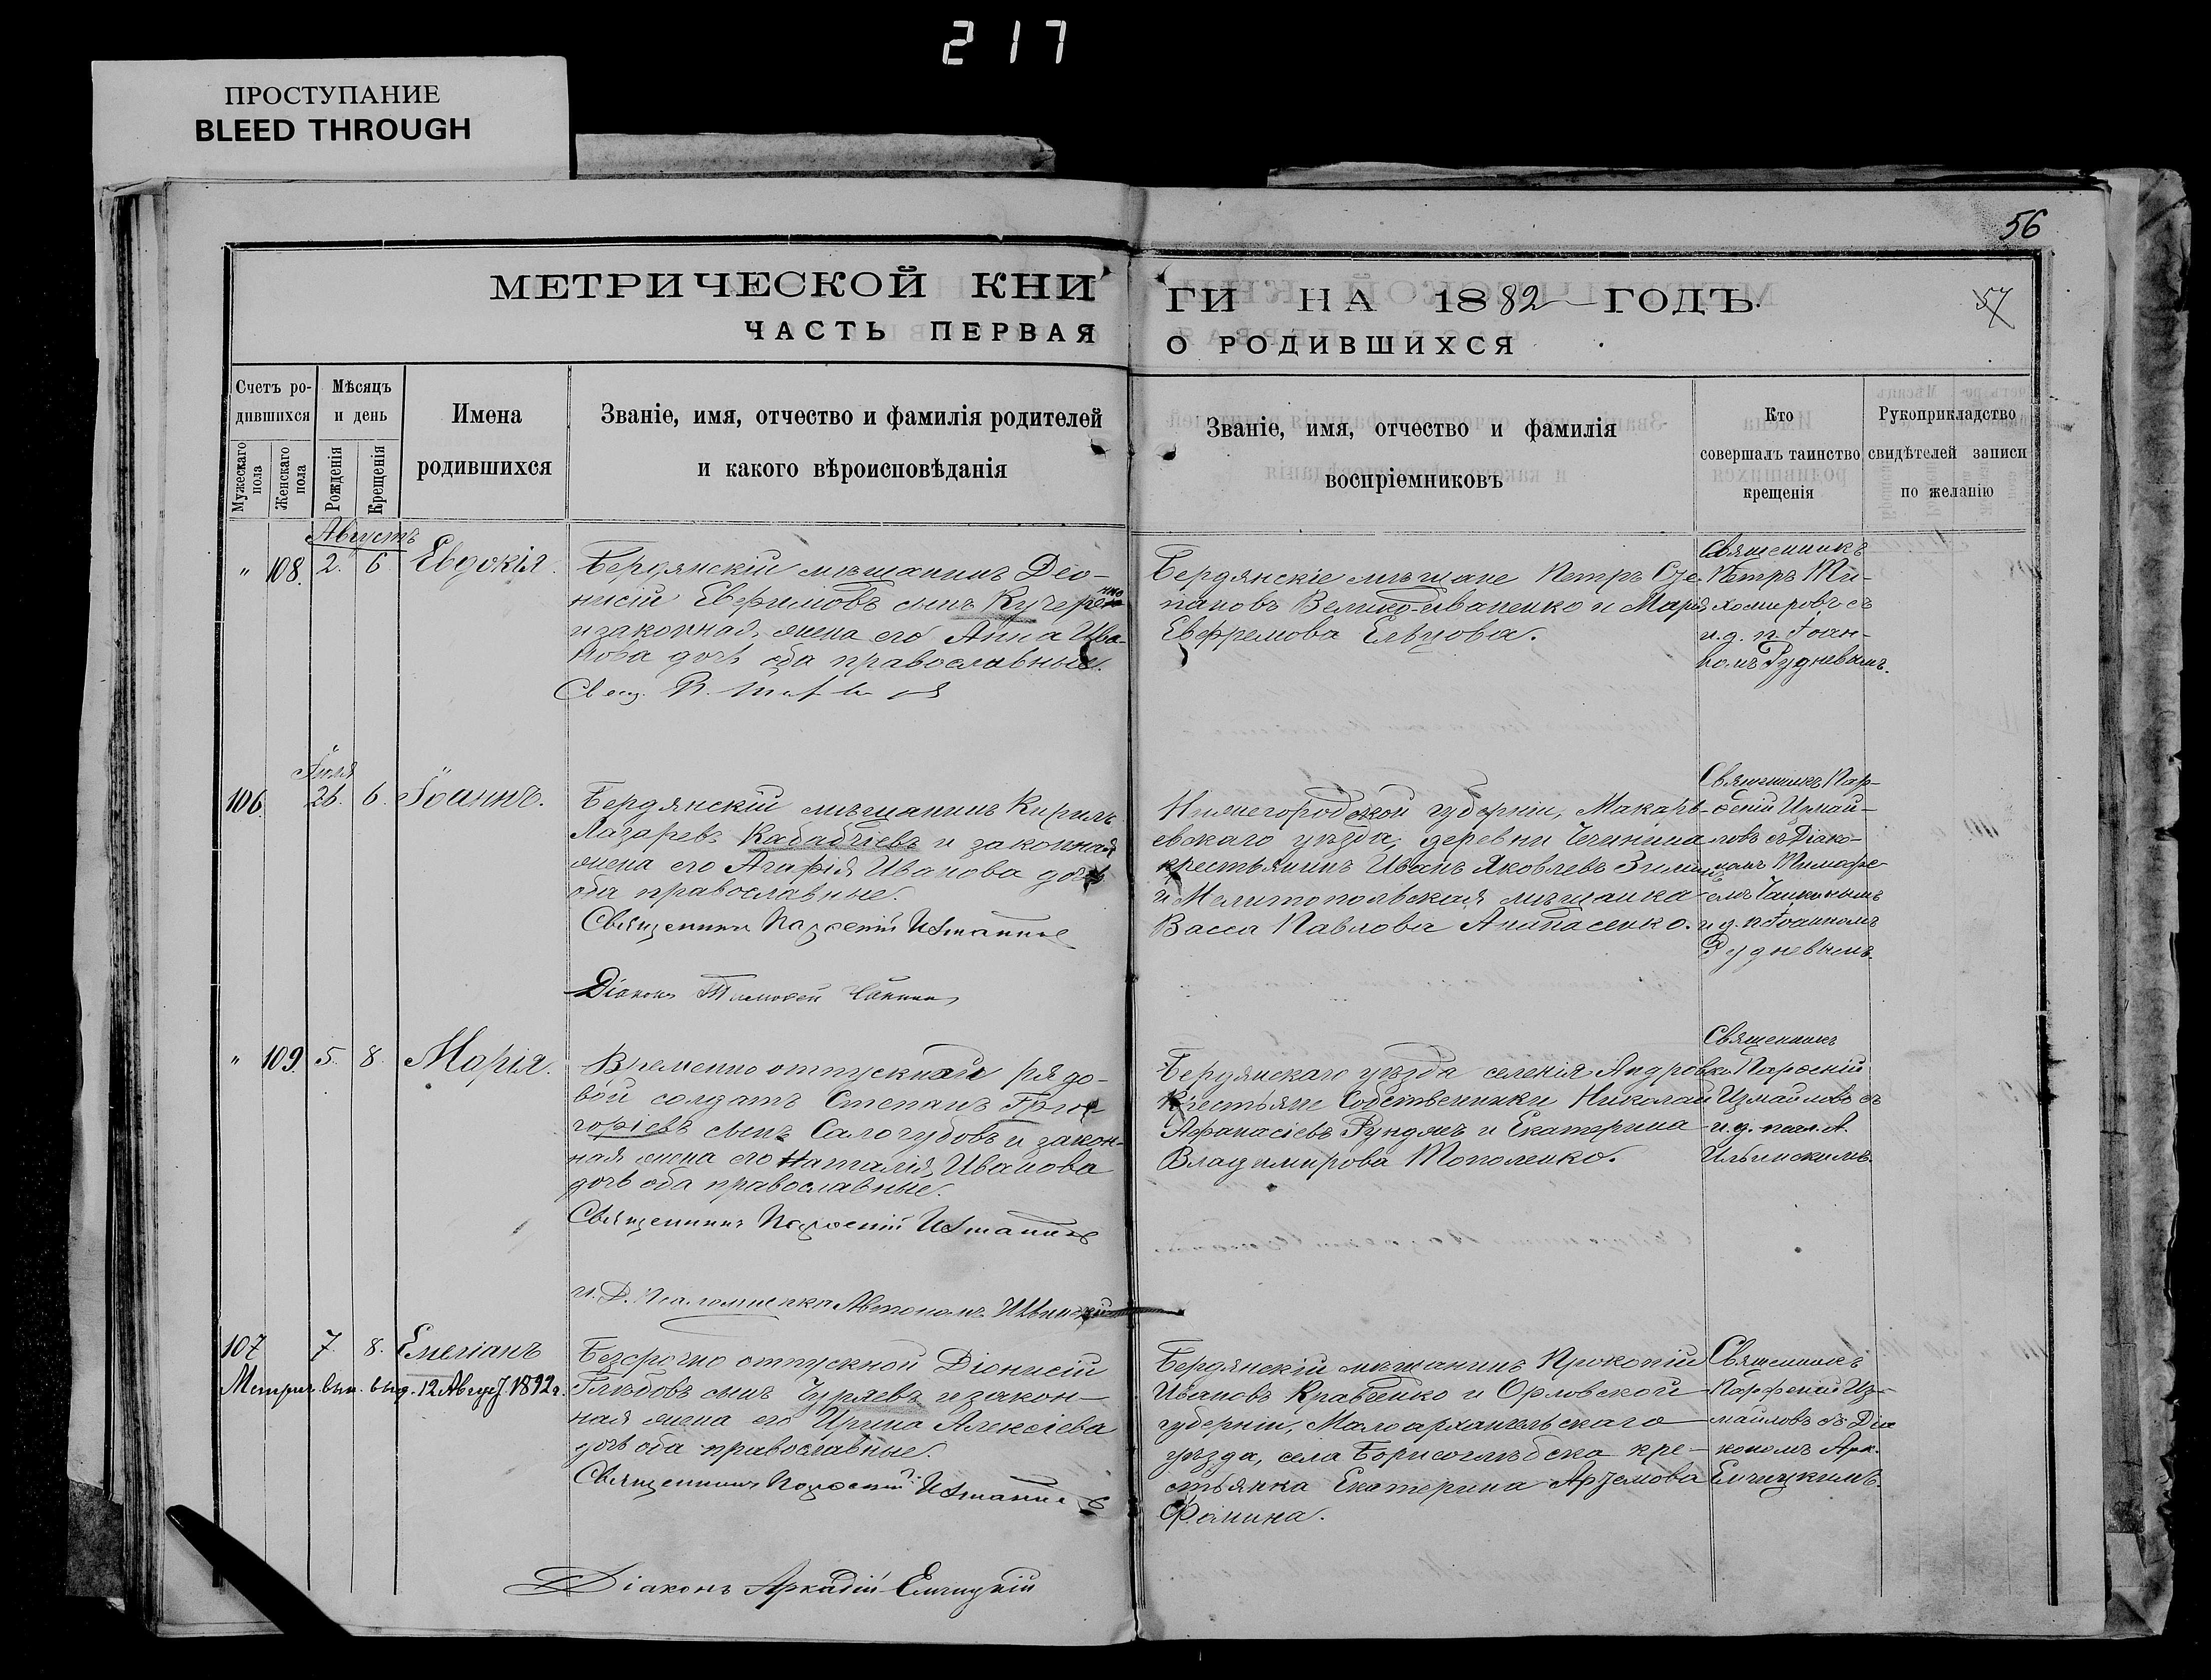 217
ПРОСТУПАНИЕ
BLEED THROUGH
56
МЕТРИЧЕСКОЙ КНИ
ГИ НА 1882 ГОДЪ.
57
ЧАСТЬ ПЕРВАЯ
О РОДИВШИХСЯ
Счетъ ро-
дившихся
Мужескаго пола
Женскаго пола
Мѣсяцъ
и день
Рожденія
Крещенія
Имена
родившихся
Званіе, имя, отчество и фамилія родителей
и какого вѣроисповѣданія
Званіе, имя, отчество и фамилія
воспріемниковъ
Кто
совершалъ таинство
крещенія
Рукоприкладство
свидѣтелей записи
по желанію
Августъ
" 108. 2. 6 Евдокія.
Бердянскій мѣщанинъ Діо-
нисій Евфимовъ сынъ Кучеренко
и законная жена его Анна Ива-
нова дочь оба православные.
Бердянскіе мѣщане Петръ Сте-
пановъ Велико-Иваненко и Марія
Евфремова Ельцова.
Священникъ
Петръ Ти-
хомировъ съ
и. д. п. Іоан-
номъ Рудневымъ.
Іюля
106. 26. 6. Іоаннъ.
Бердянскій мѣщанинъ Кирилъ
Лазаревъ Кабабчіевъ и законная
жена его Агафія Иванова дочь
оба православные.
Священникъ Парѳеній Измаиловъ
Діаконъ Тимоѳей Чайкинъ
Нижегородской губерніи, Макарь-
евскаго уѣзда, деревни
крестьянинъ Иванъ Яковлевъ Зиминъ
и Мелитопольская мѣщанка
Васса Павлова Апанасенко.
Священникъ Пар-
ѳеній Измай-
ловъ съ Діако-
номъ Тимоѳе-
емъ Чайкинымъ
и д. п. Іоанномъ
Рудневымъ.
" 109. 5. 8. Марія.
Временно отпускной рядо-
вой солдатъ Степанъ Григ-
горіевъ сынъ Салогубовъ и закон-
ная жена его Наталія Иванова
дочь оба православные.
Священникъ Парѳеній Измаиловъ
и. д. Псаломщика Автономъ Ильинскій
Бердянскаго уѣзда селенія Андровки
Крестьяне Собственники Николай
Афанасіевъ Рундикъ и Екатерина
Владимирова Тополенко.
Священникъ
Парѳеній
Измайловъ съ
и. д. псал. А.
Ильинскимъ.
107 7. 8. Емеліанъ
Метрич. вып. выд. 12 Авгус. 1892 г.
Безсрочно отпускной Діонисій
Глѣбовъ сынъ Чуряевъ и закон-
ная жена его Ирина Алексіева
дочь оба православные.
Священникъ Парѳеній Измаиловъ
Діаконъ Аркадій Елчицкій
Бердянскій мѣщанинъ Прокопій
Ивановъ Кравченко и Орловской
губерніи, Малоархангельскаго
уѣзда, села Борисоглѣбска кре-
стьянка Екатерина Артемова
Фомина.
Священникъ
Парфеній Из-
майловъ съ Діа
кономъ Арк.
Елчицкимъ.